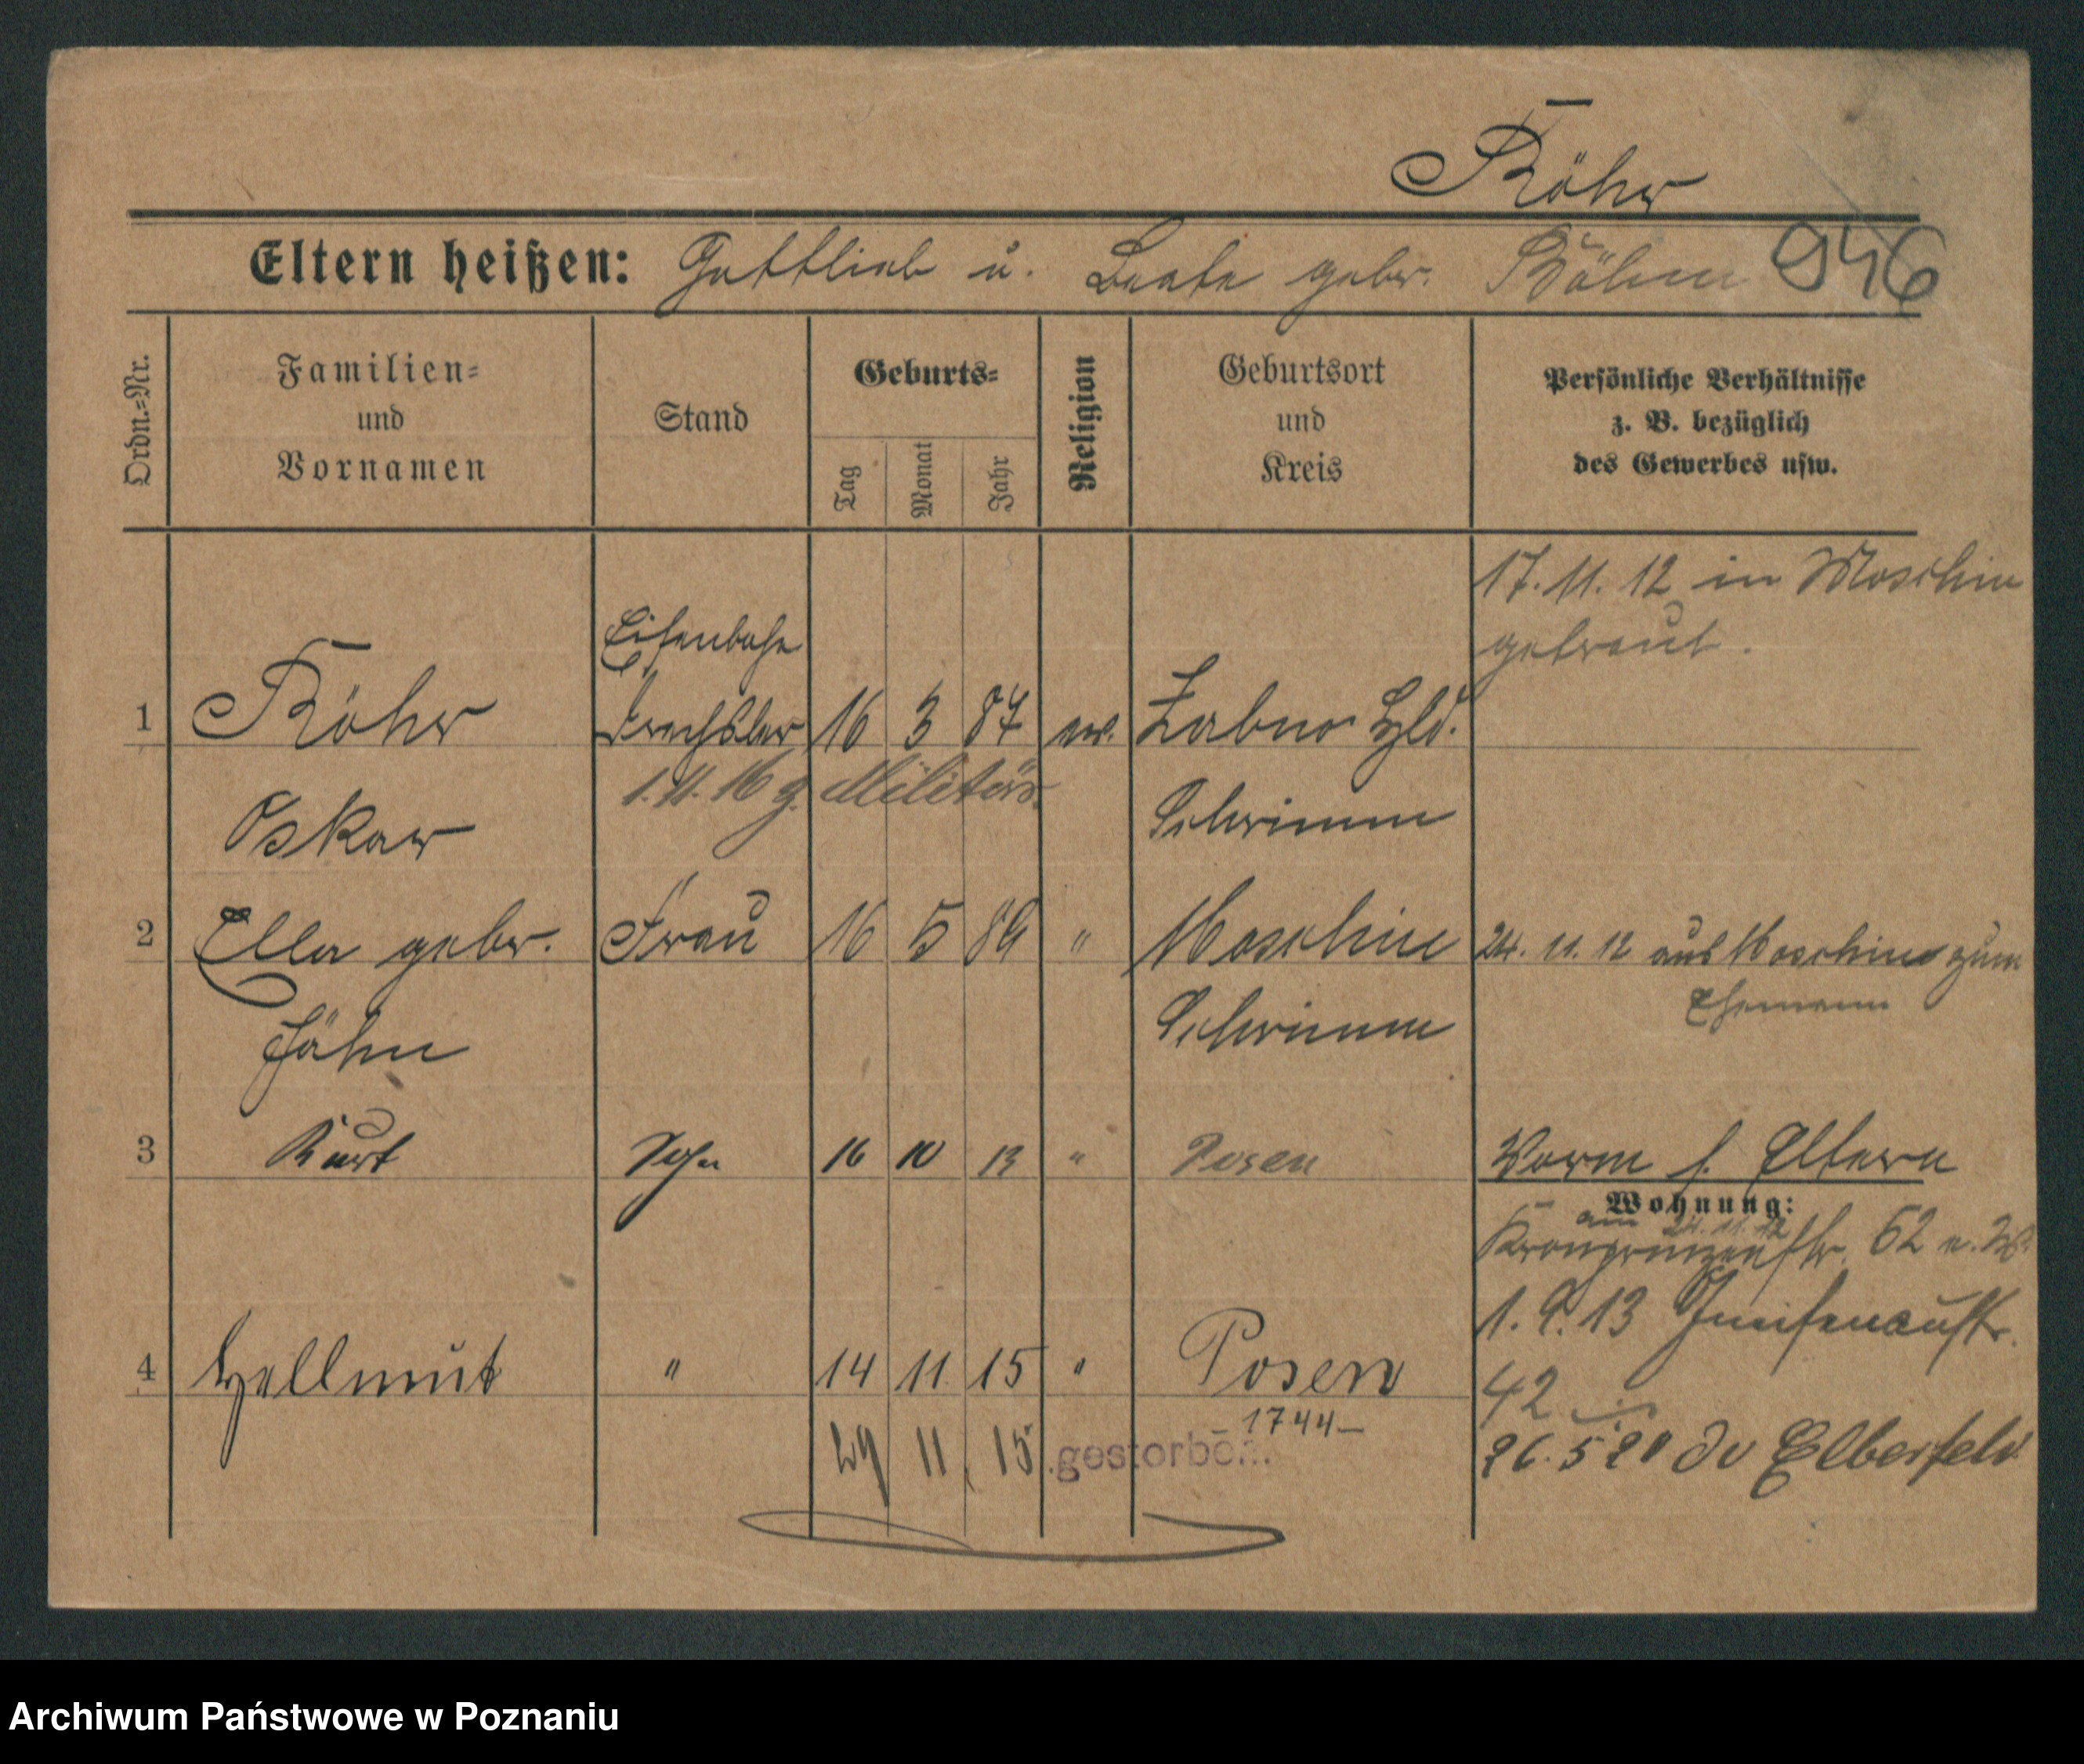 Röhr
Eltern heißen: Gottlieb u. Beate gebr. Böhm 946
Ordn.=Nr.
Familien=
und
Vornamen
Stand
Geburts=
Tag
Monat
Jahr
Religion
Geburtsort
und
Kreis
Persönliche Verhältnisse
z. B. bezüglich
des Gewerbes usw.
17. 11. 12 in Moschin
getraut.
Eisenbahn
1 Röhr Drechsler 16 3 87 ev. Zabno Hld.
1. 11. 16 z. Militär.
Oskar Schrimm
2 Ella gebr. Frau 16 5 89 " Moschin 24. 11. 12 aus Moschin zum
Ehemann
Jähn Schrimm
3 Kurt Sohn 16 10 13 " Posen Vorm s. Eltern
Wohnung:
am 24. 11. 12
Kronprinzenstr. 62
1. 9. 13 Gneisenaustr.
4 Hellmut " 14 11 15 " Posen
42
1744
29 11. 15. gestorben.
26. 5 20 Elberfeld
Archiwum Państwowe w Poznaniu